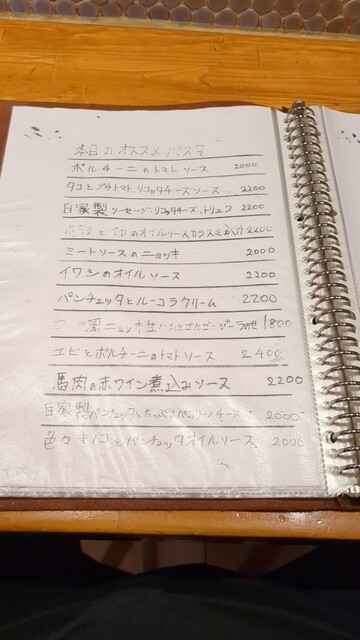 本日のオススメパスタ
ポルチーニのトマトソース 2000
タコとプチトマト.リコッタチーズソース. 2200
自家製ソーセージ.リコッタチーズ.トリュフ 2200
ホタテとイカのオイルソースカラスミかけ 2200
ミートソースのニョッキ 2000
イワシのオイルソース 2200
パンチェッタとルーコラクリーム 2200
風ニョッキ生ハムとゴルゴンゾーラのせ 1800
エビとポルチーニのトマトソース 2400
馬肉の赤ワイン煮込みソース 2200
自家製パンチェッタとたっぷりペコリーノチーズ. 2000
色々キノコとパンチェッタオイルソース. 2000